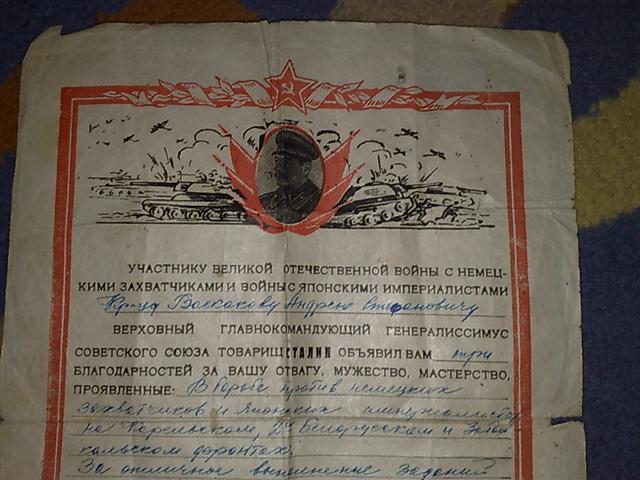 УЧАСТНИКУ ВЕЛИКОЙ ОТЕЧЕСТВЕННОЙ ВОЙНЫ С НЕМЕЦ-
КИМИ ЗАХВАТЧИКАМИ И ВОЙНЫ С ЯПОНСКИМИ ИМПЕРИАЛИСТАМИ
Кр-цу Воскакову Андрею Степановичу
ВЕРХОВНЫЙ ГЛАВНОКОМАНДУЮЩИЙ ГЕНЕРАЛИССИМУС
СОВЕТСКОГО СОЮЗА ТОВАРИЩ СТАЛИН ОБЪЯВИЛ ВАМ три
БЛАГОДАРНОСТЕЙ ЗА ВАШУ ОТВАГУ, МУЖЕСТВО, МАСТЕРСТВО,
ПРОЯВЛЕННЫЕ: В борьбе против немецких
захватчиков и Японских империалистов
на Карельском, 2м Белорусском и Забай
кальском фронтах.
За отличное выполнение заданий